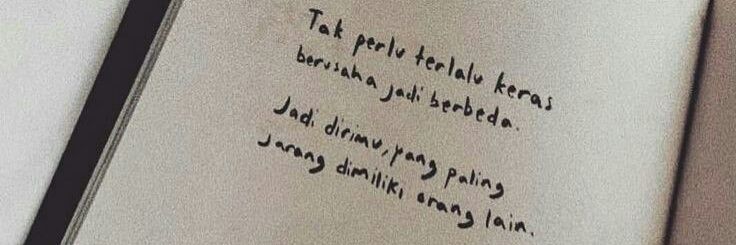 Tak perlu terlalu keras
berusaha jadi berbeda.
Jadi dirimu, yang paling
jarang dimiliki orang lain.